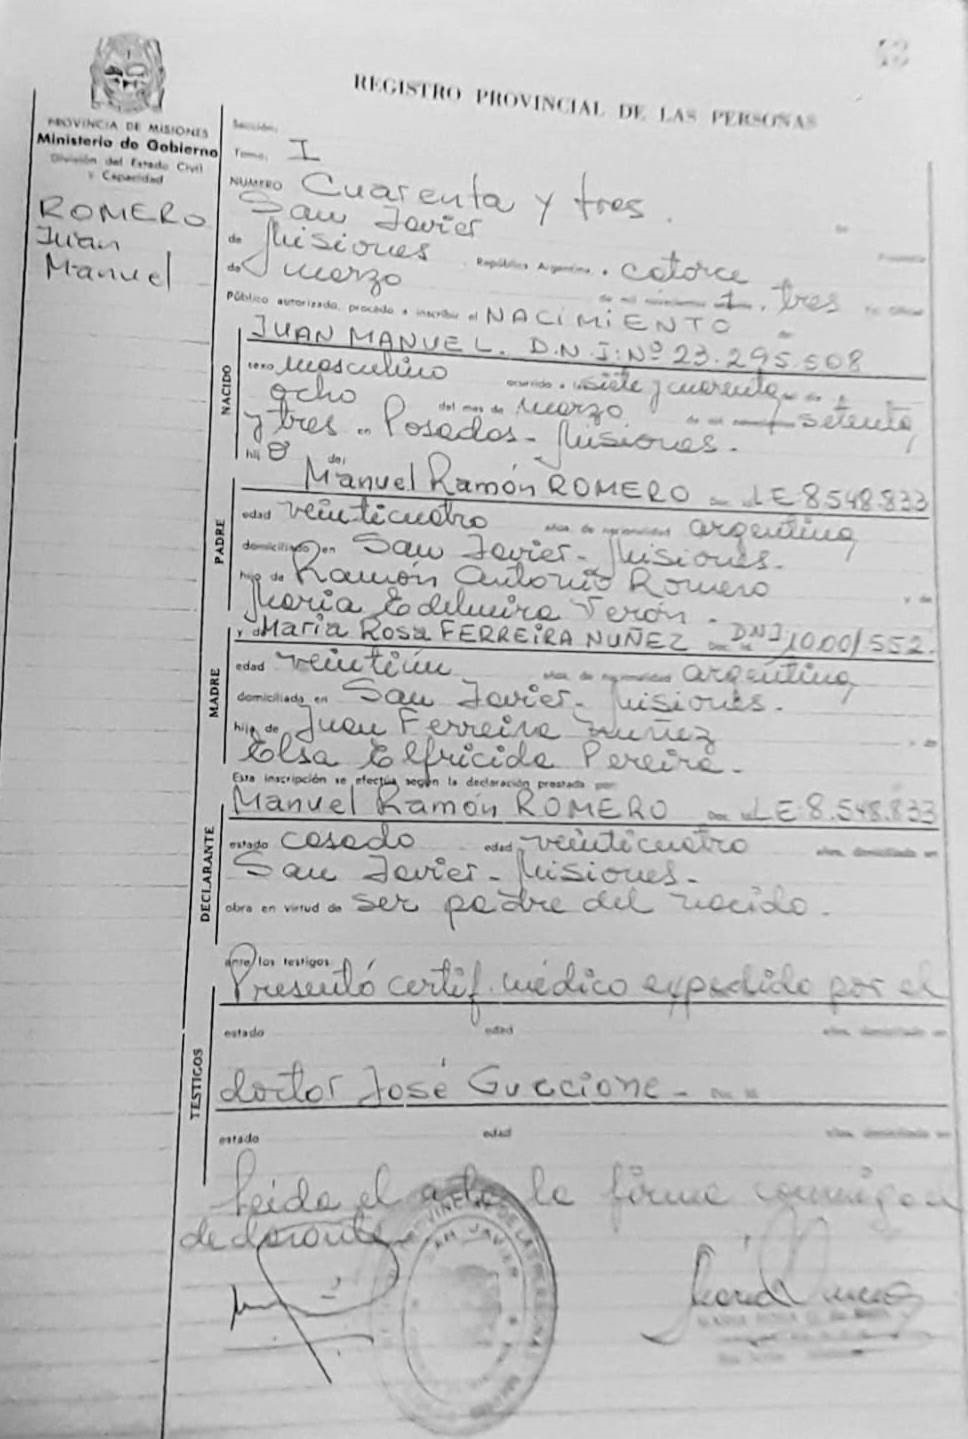 43
REGISTRO PROVINCIAL DE LAS PERSONAS
PROVINCIA DE MISIONES
Ministerio de Gobierno
División del Estado Civil
y Capacidad
ROMERO
Juan
Manuel
Sección,
Tomo, I
NUMERO Cuarenta y tres.
San Javier
de Misiones República Argentina, a catorce
de marzo de mil novecientos tres
Público autorizado, procedo a inscribir el NACIMIENTO de
JUAN MANUEL. D.N.I: Nº 23.295.508
NACIDO
sexo masculino ocurrido a siete y cuarenta
ocho del mes de marzo de mil novecientos setenta
y tres en Posadas - Misiones.
hij o de:
Manuel Ramón ROMERO LE 8.548.833
PADRE
edad veinticuatro años, de nacionalidad argentina
domiciliado en San Javier - Misiones.
hijo de Ramón Antonio Romero y de
María Edelmira Verón.
y de María Rosa FERREIRA NUÑEZ DNI 10.001552.
MADRE
edad veintiún años, de nacionalidad argentina
domiciliada en San Javier - Misiones.
hija de Juan Ferreira Nuñez y de
Elsa Elfricida Pereira.
Esta inscripción se efectúa según la declaración prestada por:
Manuel Ramón ROMERO Doc. Id. LE 8.548.833
DECLARANTE
estado casado edad veinticuatro años, domiciliado en
San Javier - Misiones -
obra en virtud de ser padre del nacido.
ante los testigos
Presentó certif. médico expedido por el
TESTIGOS
estado edad años, domiciliado en
doctor José Guccione -
estado edad años, domiciliado en
Leída el acta la firma conmigo el
declarante
SAN JAVIER